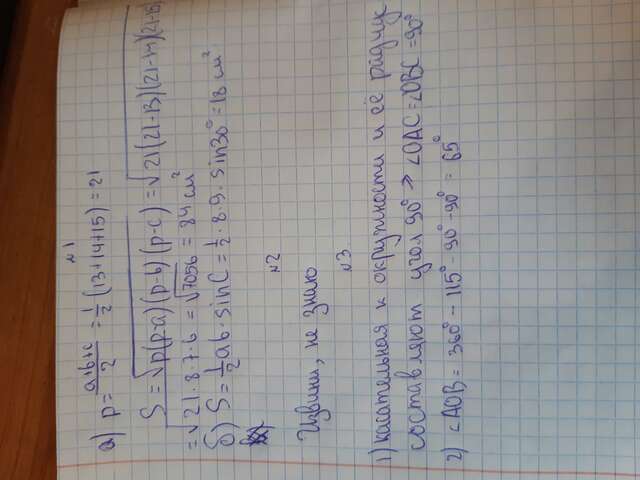 №1
а) p = a+b+c/2 = 1/2 (13+14+15) = 21
S = √p(p-a)(p-b)(p-c) = √21(21-13)(21-14)(21-15)
= √21·8·7·6 = √7056 = 84 см²
б) S = 1/2 ab·sinC = 1/2·8·9·sin30° = 18 см²
№2
Извини, не знаю
№3
1) касательная к окружности и её радиус
составляют угол 90° => ∠OAC = ∠OBC = 90°
2) ∠AOB = 360° - 115° - 90° - 90° = 65°